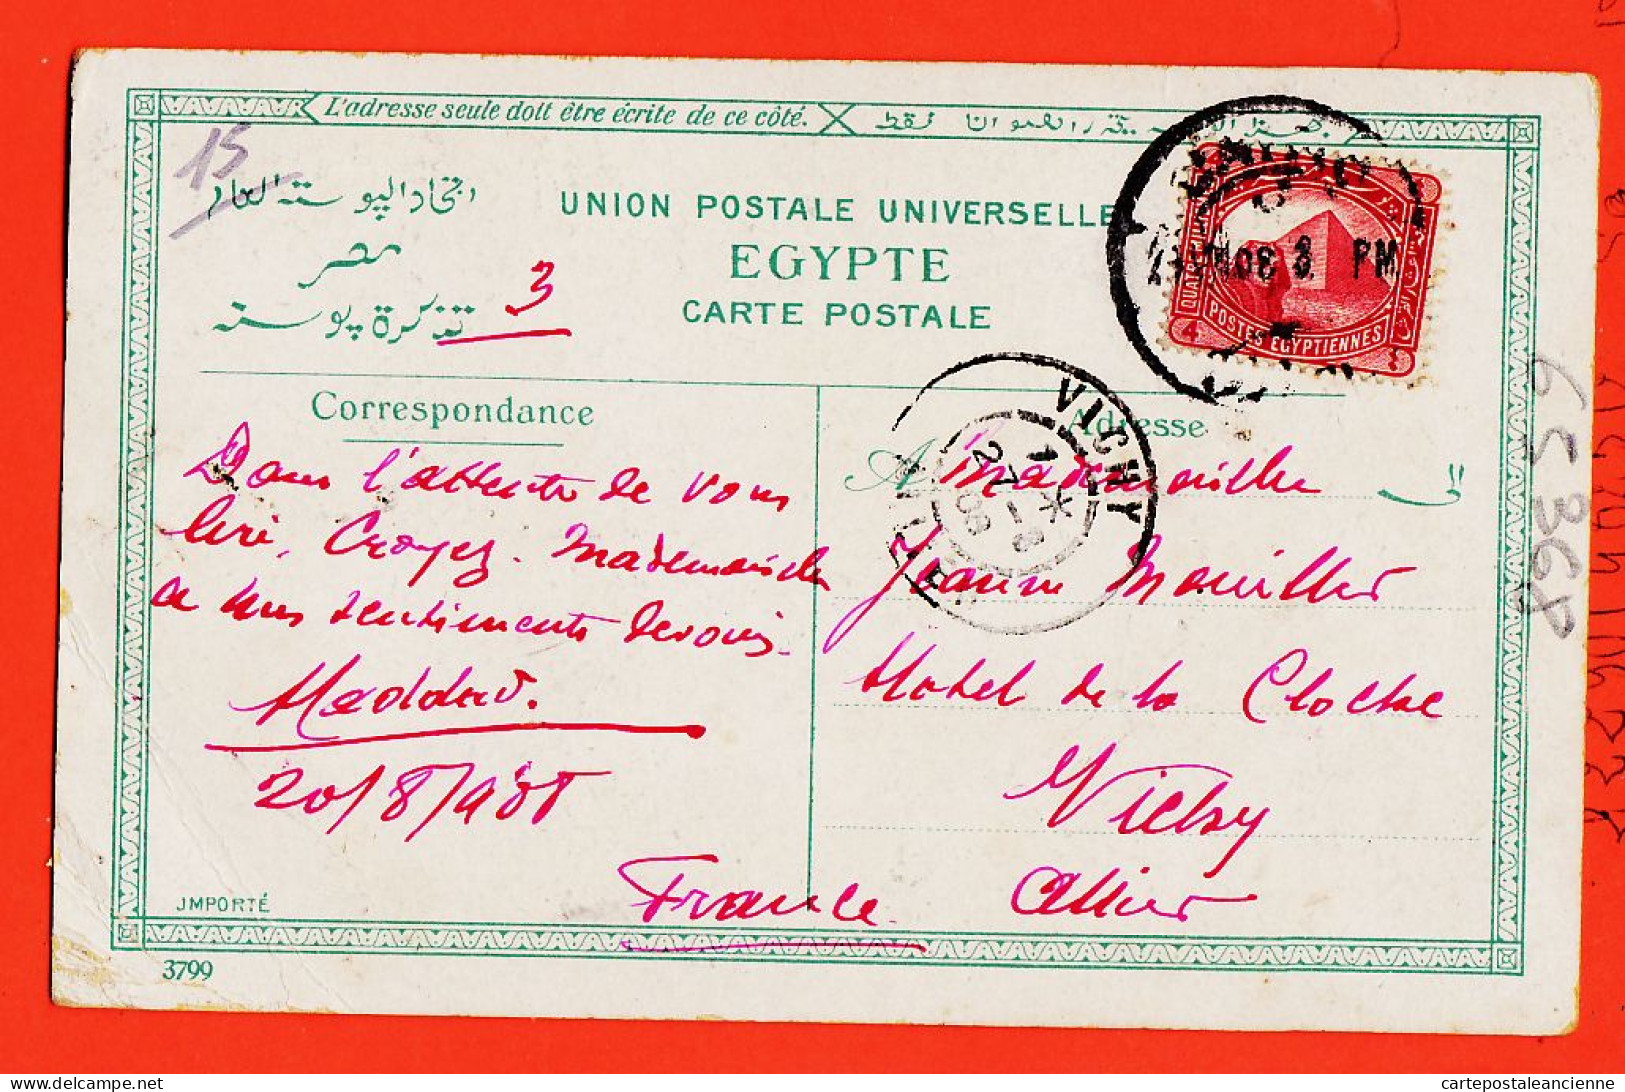 L'adresse seule doit être écrite de ce côté.
15
اتحاد البوستة العام
مصر
تذكرة بوستة
3
UNION POSTALE UNIVERSELLE
EGYPTE
CARTE POSTALE
PM
QUATRE
POSTES EGYPTIENNES
4
VICHY
27
8
08
Correspondance
Adresse
Dans l'attente de vous
lire, Croyez. Mademoiselle
a nos sentiments devoués
Haddad.
20/8/908
A Mademoiselle
Jeanne
Hotel de la Cloche
Vichy
Allier
France
JMPORTÉ
3799
65368
cartepostaleancienne
delcampe.net